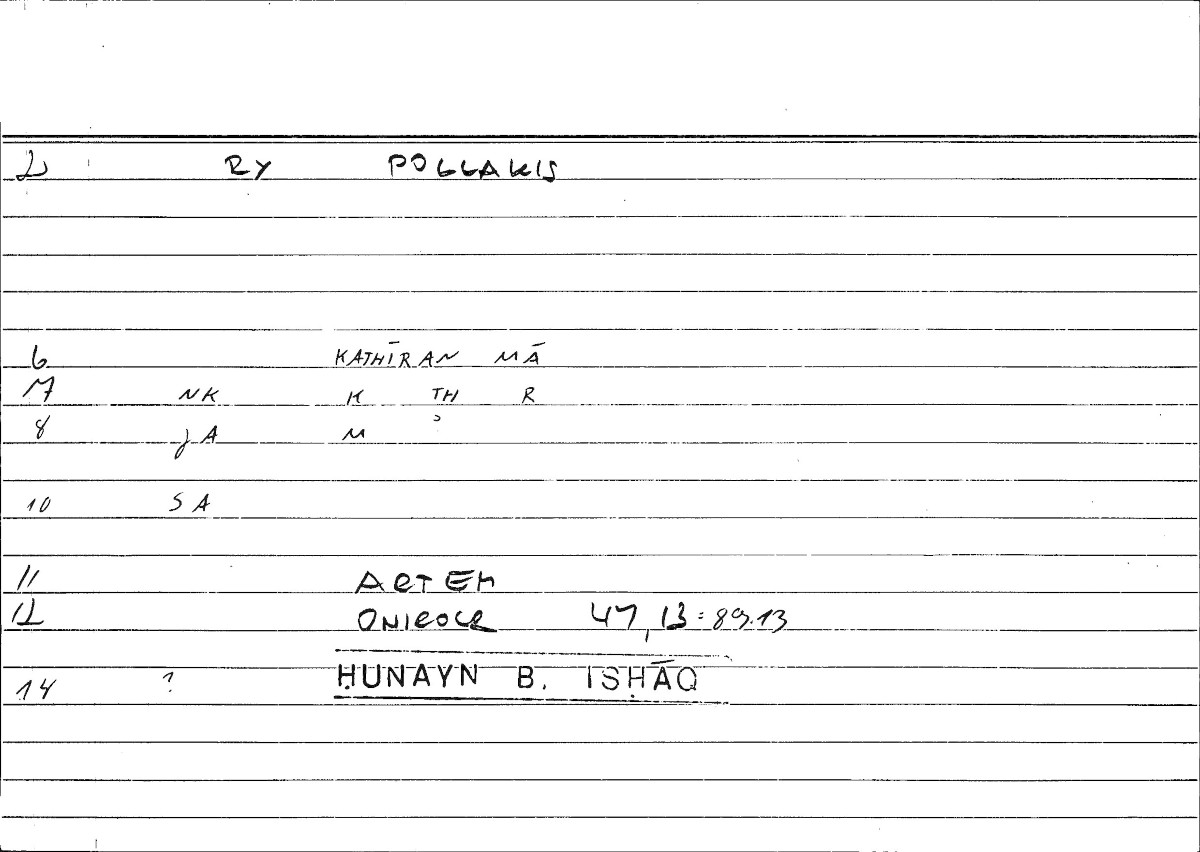 2 RY POLLAKIS
6 KATHĪRAN MĀ
7 NK K TH R
8 JA M ʾ
10 SA
11 ARTEM
12 ONIROCR 47, 13 = 89.13
14 ? ḤUNAYN B. ISḤĀQ